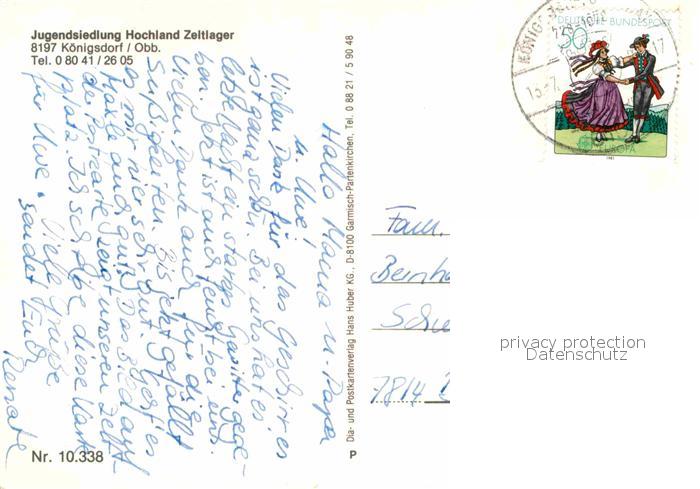 Jugendsiedlung Hochland Zeltlager
8197 Königsdorf / Obb.
Tel. 0 80 41 / 26 05
Hallo Mama u. Papa
u. Uwe!
Vielen Dank für das Geschirr, es
ist ganz schön. Bei uns hat es
letzte Nacht ein starkes Gewitter gege-
ben. Jetzt ist auch feucht bei uns.
Vielen Dank auch für die
Süßigkeiten. Bis jetzt gefällt
es mir hier sehr gut. geht's
auch gut. Das Bild auf
der Postkarte zeigt unseren Zelt-
platz. Ich schreibe diese Karte
für Uwe. Viele Grüße
sendet Euch
Renate
Nr. 10.338
Dia- und Postkartenverlag Hans Huber KG., D-8100 Garmisch-Partenkirchen, Tel. 0 88 21 / 5 90 48
P
DEUTSCHE BUNDESPOST
50
EUROPA
1981
KÖNIGS
Fam.
Bernha
7814
privacy protection
Datenschutz